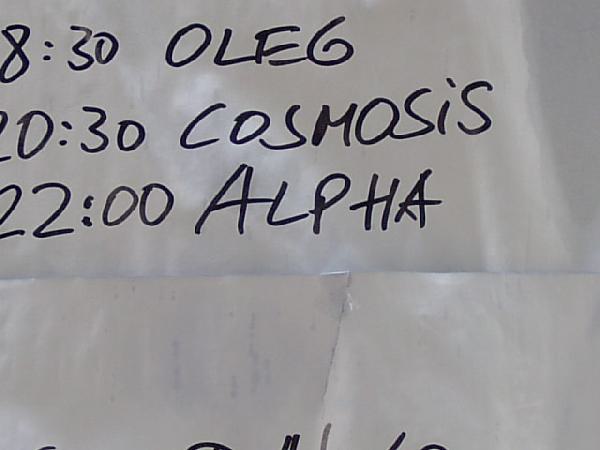 8:30 OLEG
20:30 COSMOSiS
22:00 ALPHA